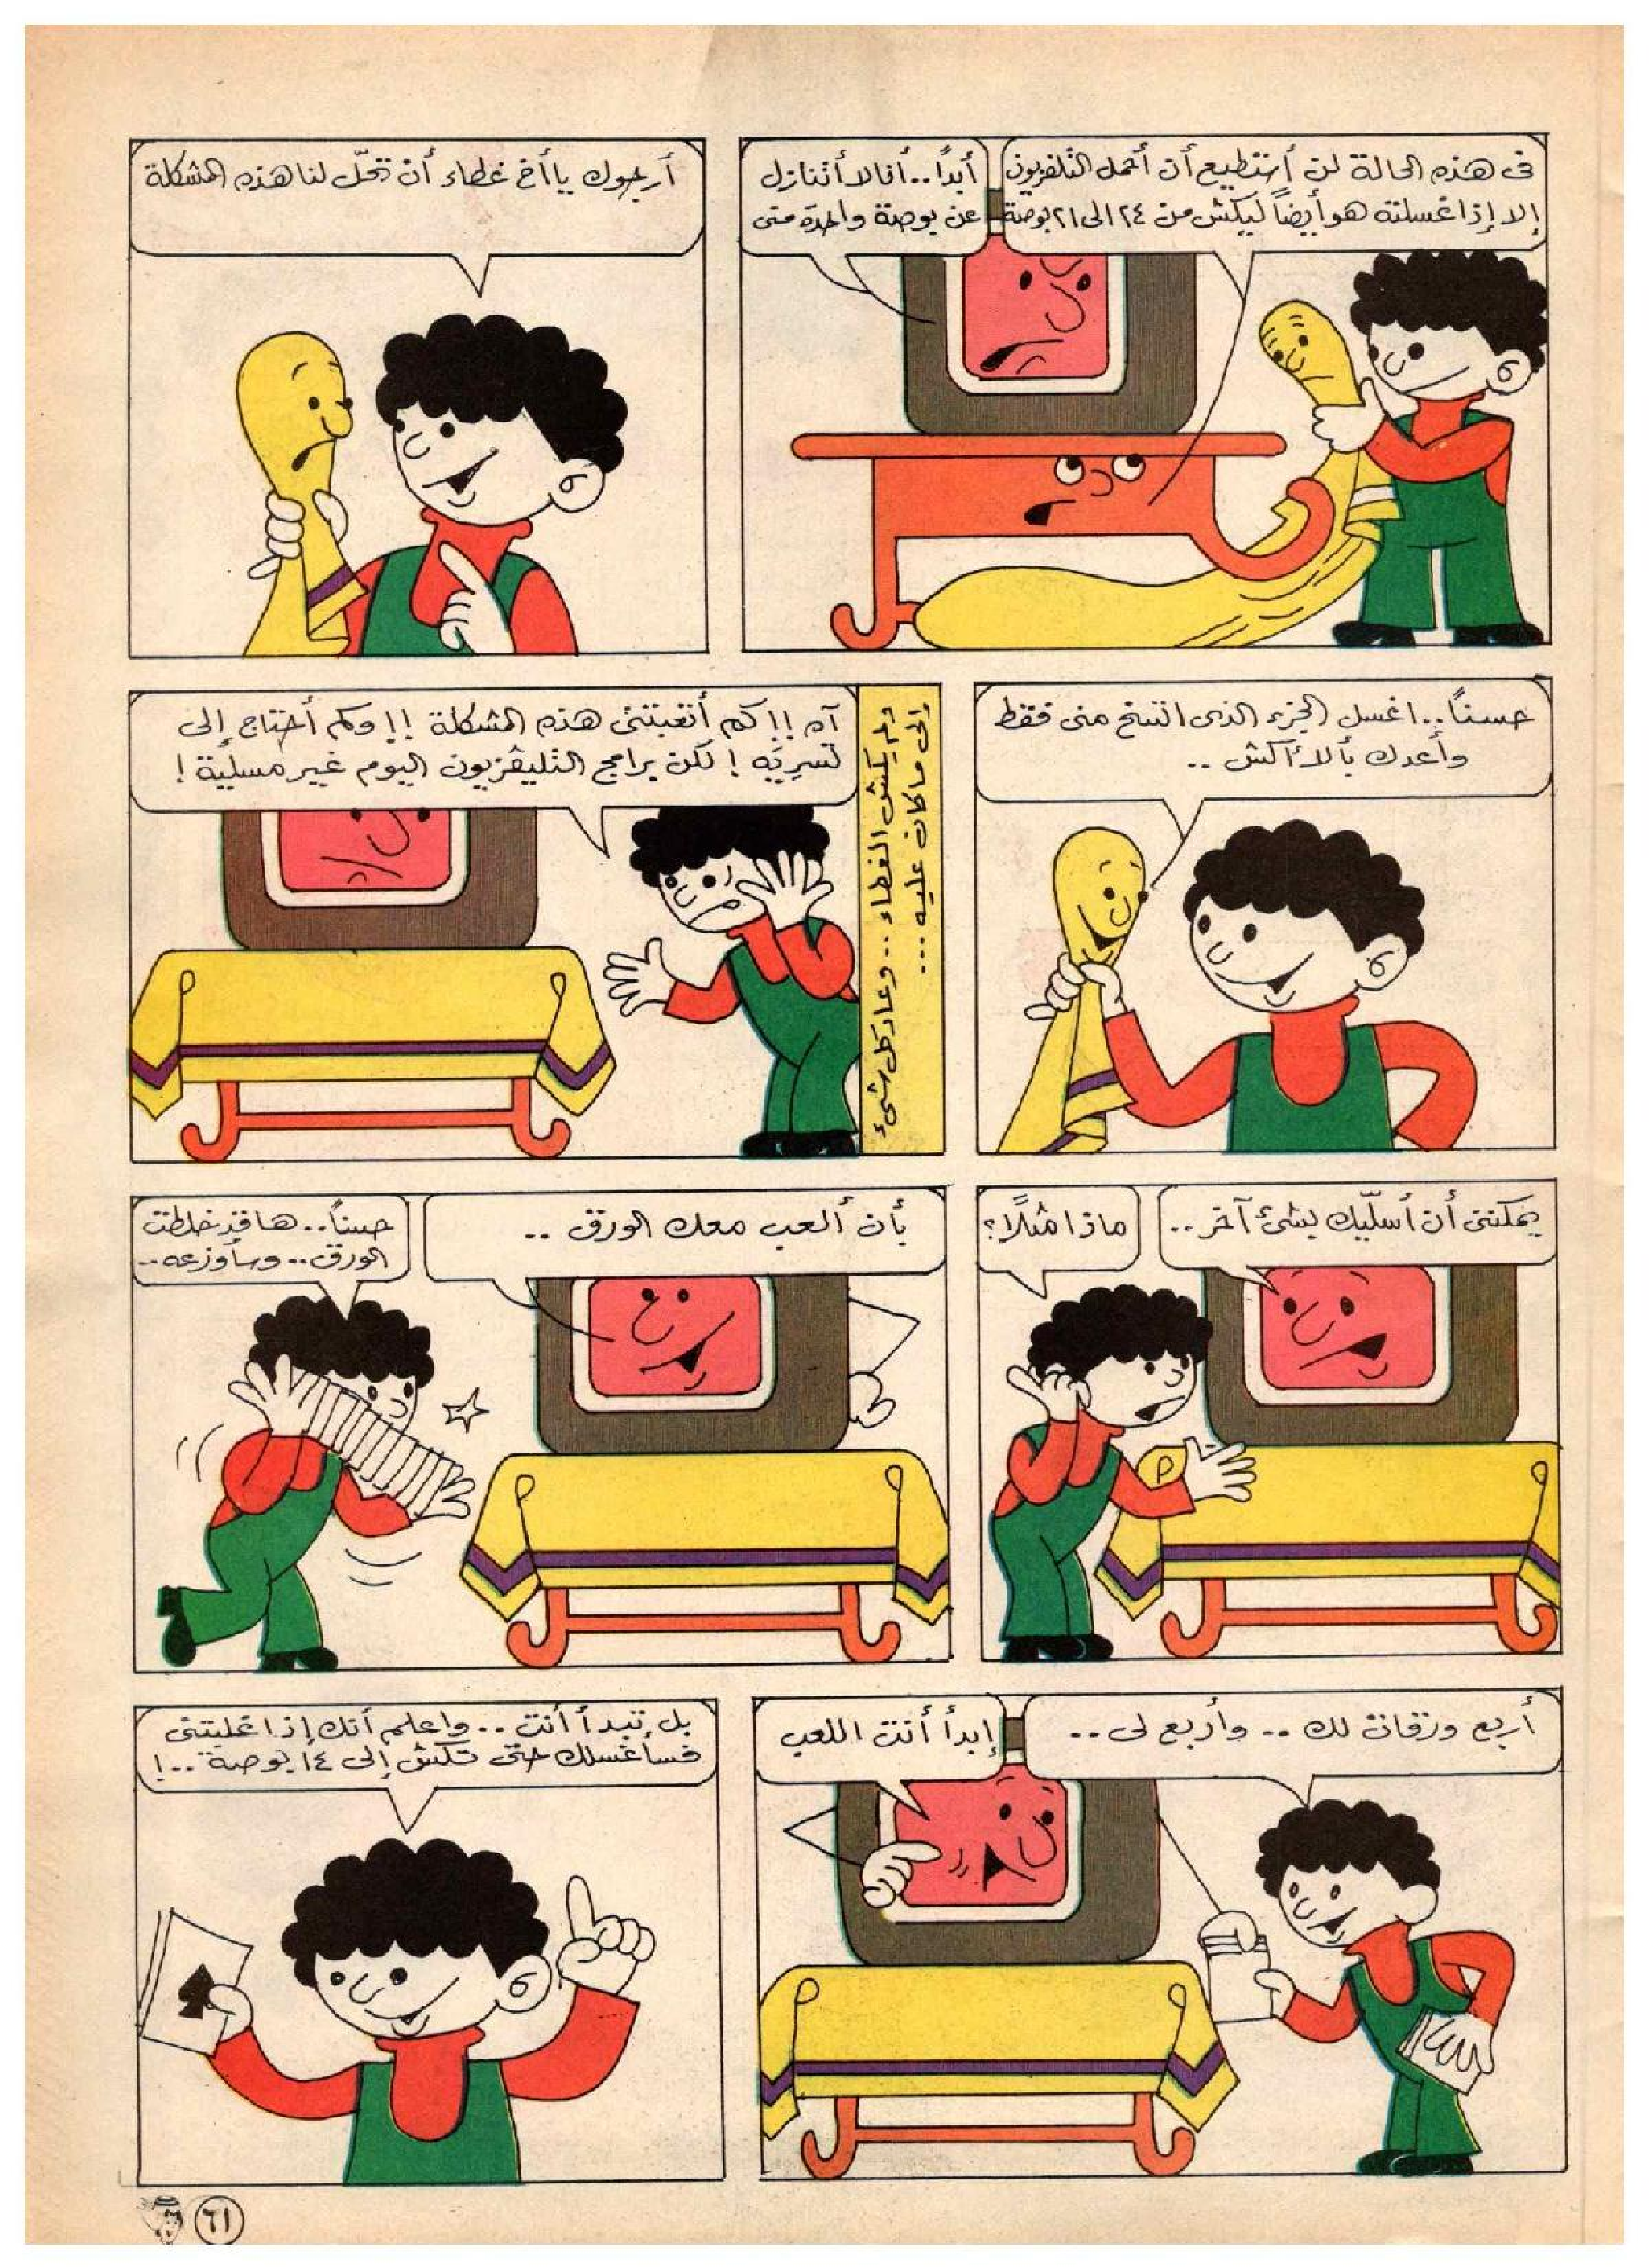 فى هذه الحالة لن أستطيع أن أحمل التلفزيون
إلا إذا غسلته هو أيضاً ليكش من ٢٤ الى ٢١ بوصة
أبداً.. أنا لا أتنازل
عن بوصة واحدة منى
أرجوك يا أخ غطاء أن تحلّ لنا هذه المشكلة
حسناً.. اغسل الجزء الذى اتسخ منى فقط
وأعدك بألا أكش ..
ولم يكش الغطاء .. وعاد كل شىء
إلى ما كان عليه ...
آه !! كم أتعبتنى هذه المشكلة !! وكم أحتاج إلى
تسرية ! لكن برامج التليفزيون اليوم غير مسلية !
يمكننى أن أسلّيك بشىء آخر ..
ماذا مثلاً؟
بأن ألعب معك الورق ..
حسناً.. ها قد خلطت
الورق .. وسأوزعه ..
أربع ورقات لك .. وأربع لى ..
إبدأ أنت اللعب
بل تبدأ أنت .. واعلم أنك إذا غلبتنى
فسأغسلك حتى تكش إلى ١٤ بوصة ..!
٦١